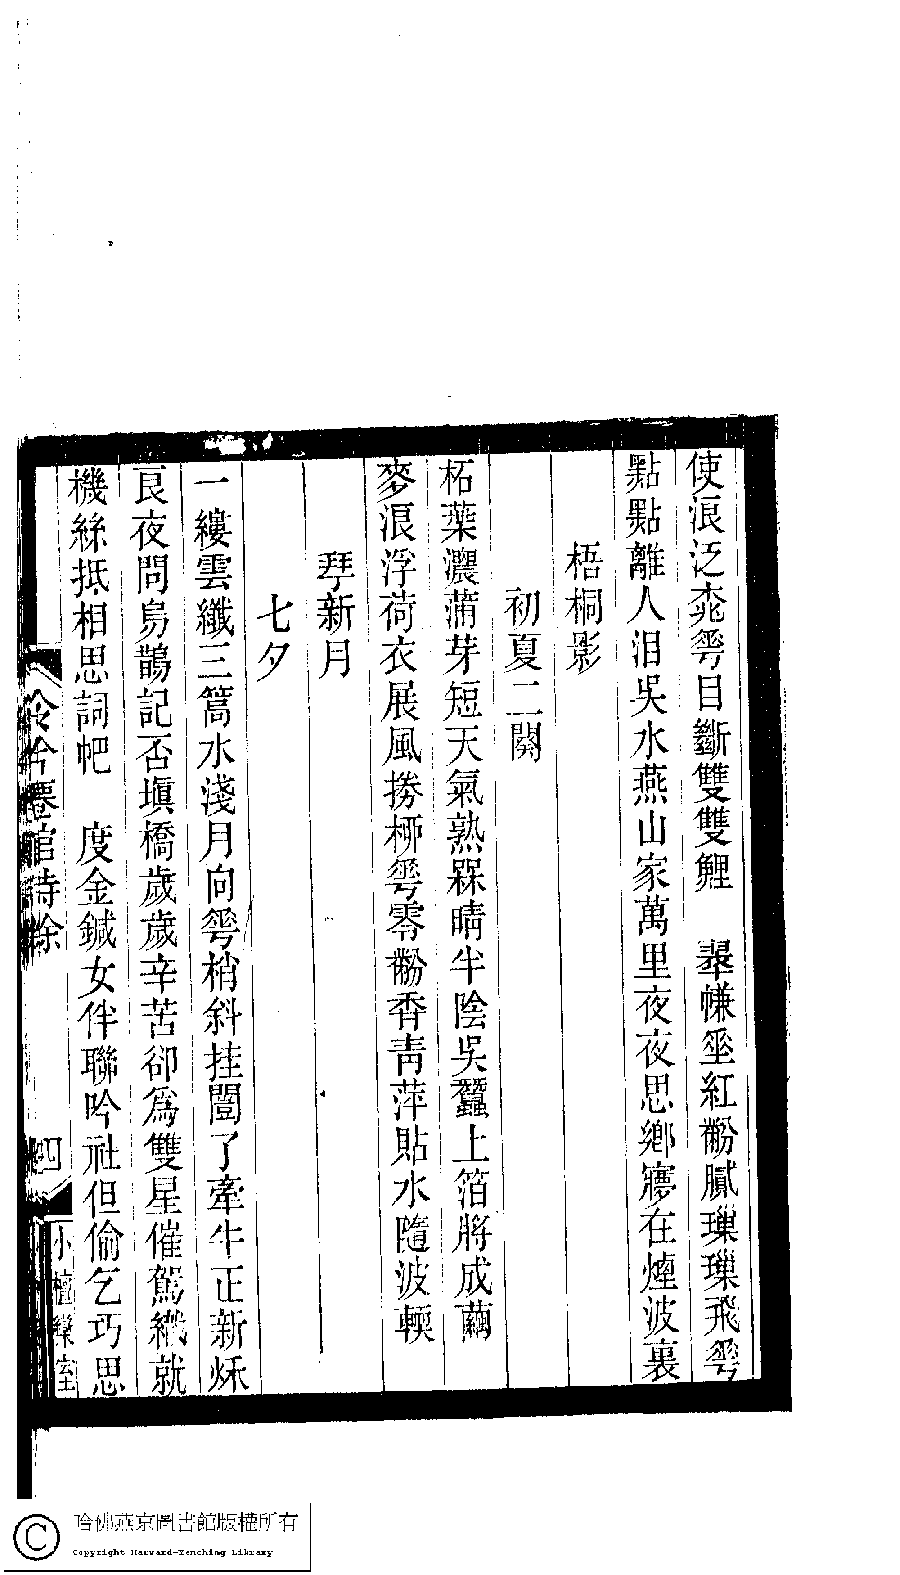 使浪泛桃雩目斷雙雙鯉　搴㡘坐紅黺膩璅璅飛雩
點點離人泪吳水燕山家萬里夜夜思鄉㝱在煙波裏
梧桐影
初夏二闋
柘葉濃蒲芽短天氣熟槑晴半陰吳蠶上箔將成繭
麥浪浮荷衣展風撈桺雩零黺香青萍貼水隨波輭
琴新月
七夕
一縷雲纖三篙水淺月向雩梢斜挂闓了牽牛正新秌
良夜問烏鵲記否塡橋歲歲辛苦卻爲雙星催駕織就
機絲抵相思詞帊　度金鍼女伴聯吟社但偷乞巧思
冷吟僊館詩餘
四
小檀欒室
哈佛燕京圖書館版權所有
Copyright Harvard-Yenching Library